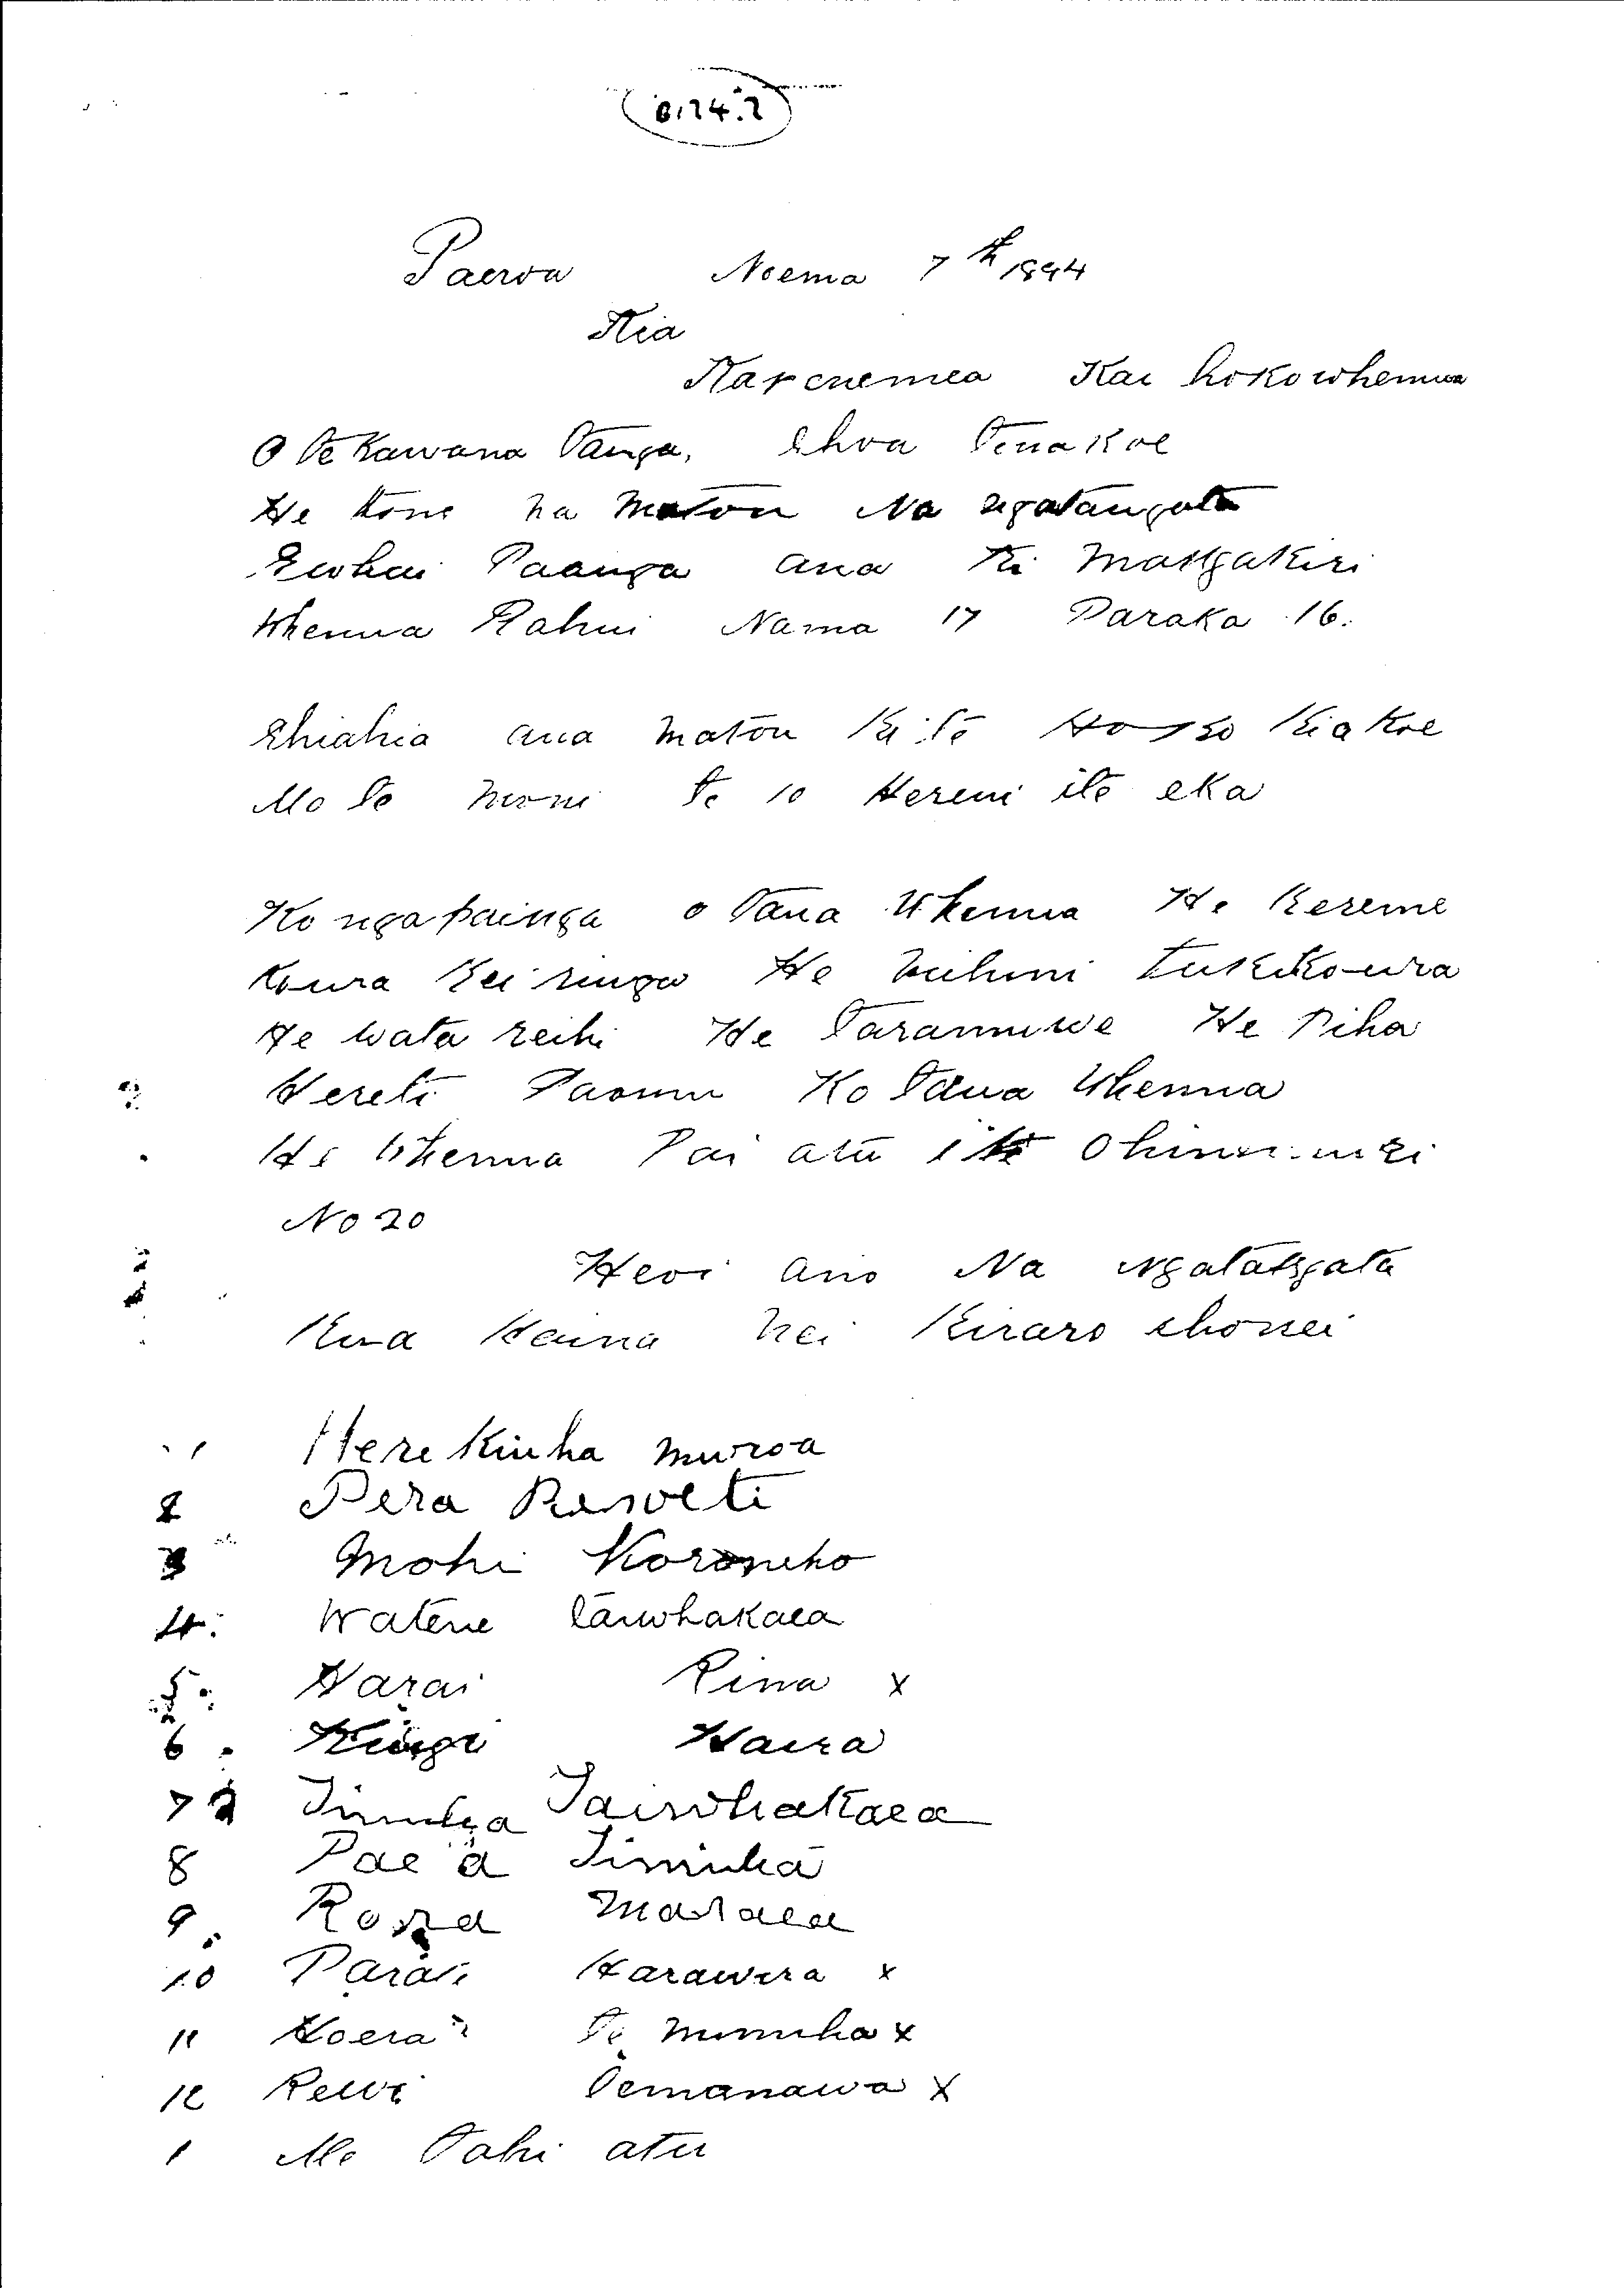 Paeroa Noema 7th 1894
Kia
Kai hokowhenua
O Te Kawana Tanga, Ehoa Tenakoe
He tono na matou Na ngatangata
Ewhai Paanga ana ki Mangakiri
Whenua Rahui Nama 17 Paraka 16.
Ehiahia ana matou Ki te Hoko Kia Koe
Mo te moni te 10 Hereni ite eka
Ko ngapainga o Taua Whenua He Kereme
Koura Kei runga He Mihini tukikoura
He wata reihi He Taramuwe He Piha
Hereti Paomu Ko Taua Whenua
He Whenua Pai atu i te Ohinemuri
No 20
Heoi ano Na Ngatangata
Kua Haina nei Kiraro ehonei
1 Here Kiuha muroa
2 Pera
3 Mohi
4. Watene Taiwhakaea
5. Harai Pina x
6. Kingi Haira
7 Timiuha Taiwhakaea
8 Timiuha
9. Maraea
10 Harawira x
11 Hoera Te Mimiha x
12 Rewi Temanawa x
1 Me Tahi atu